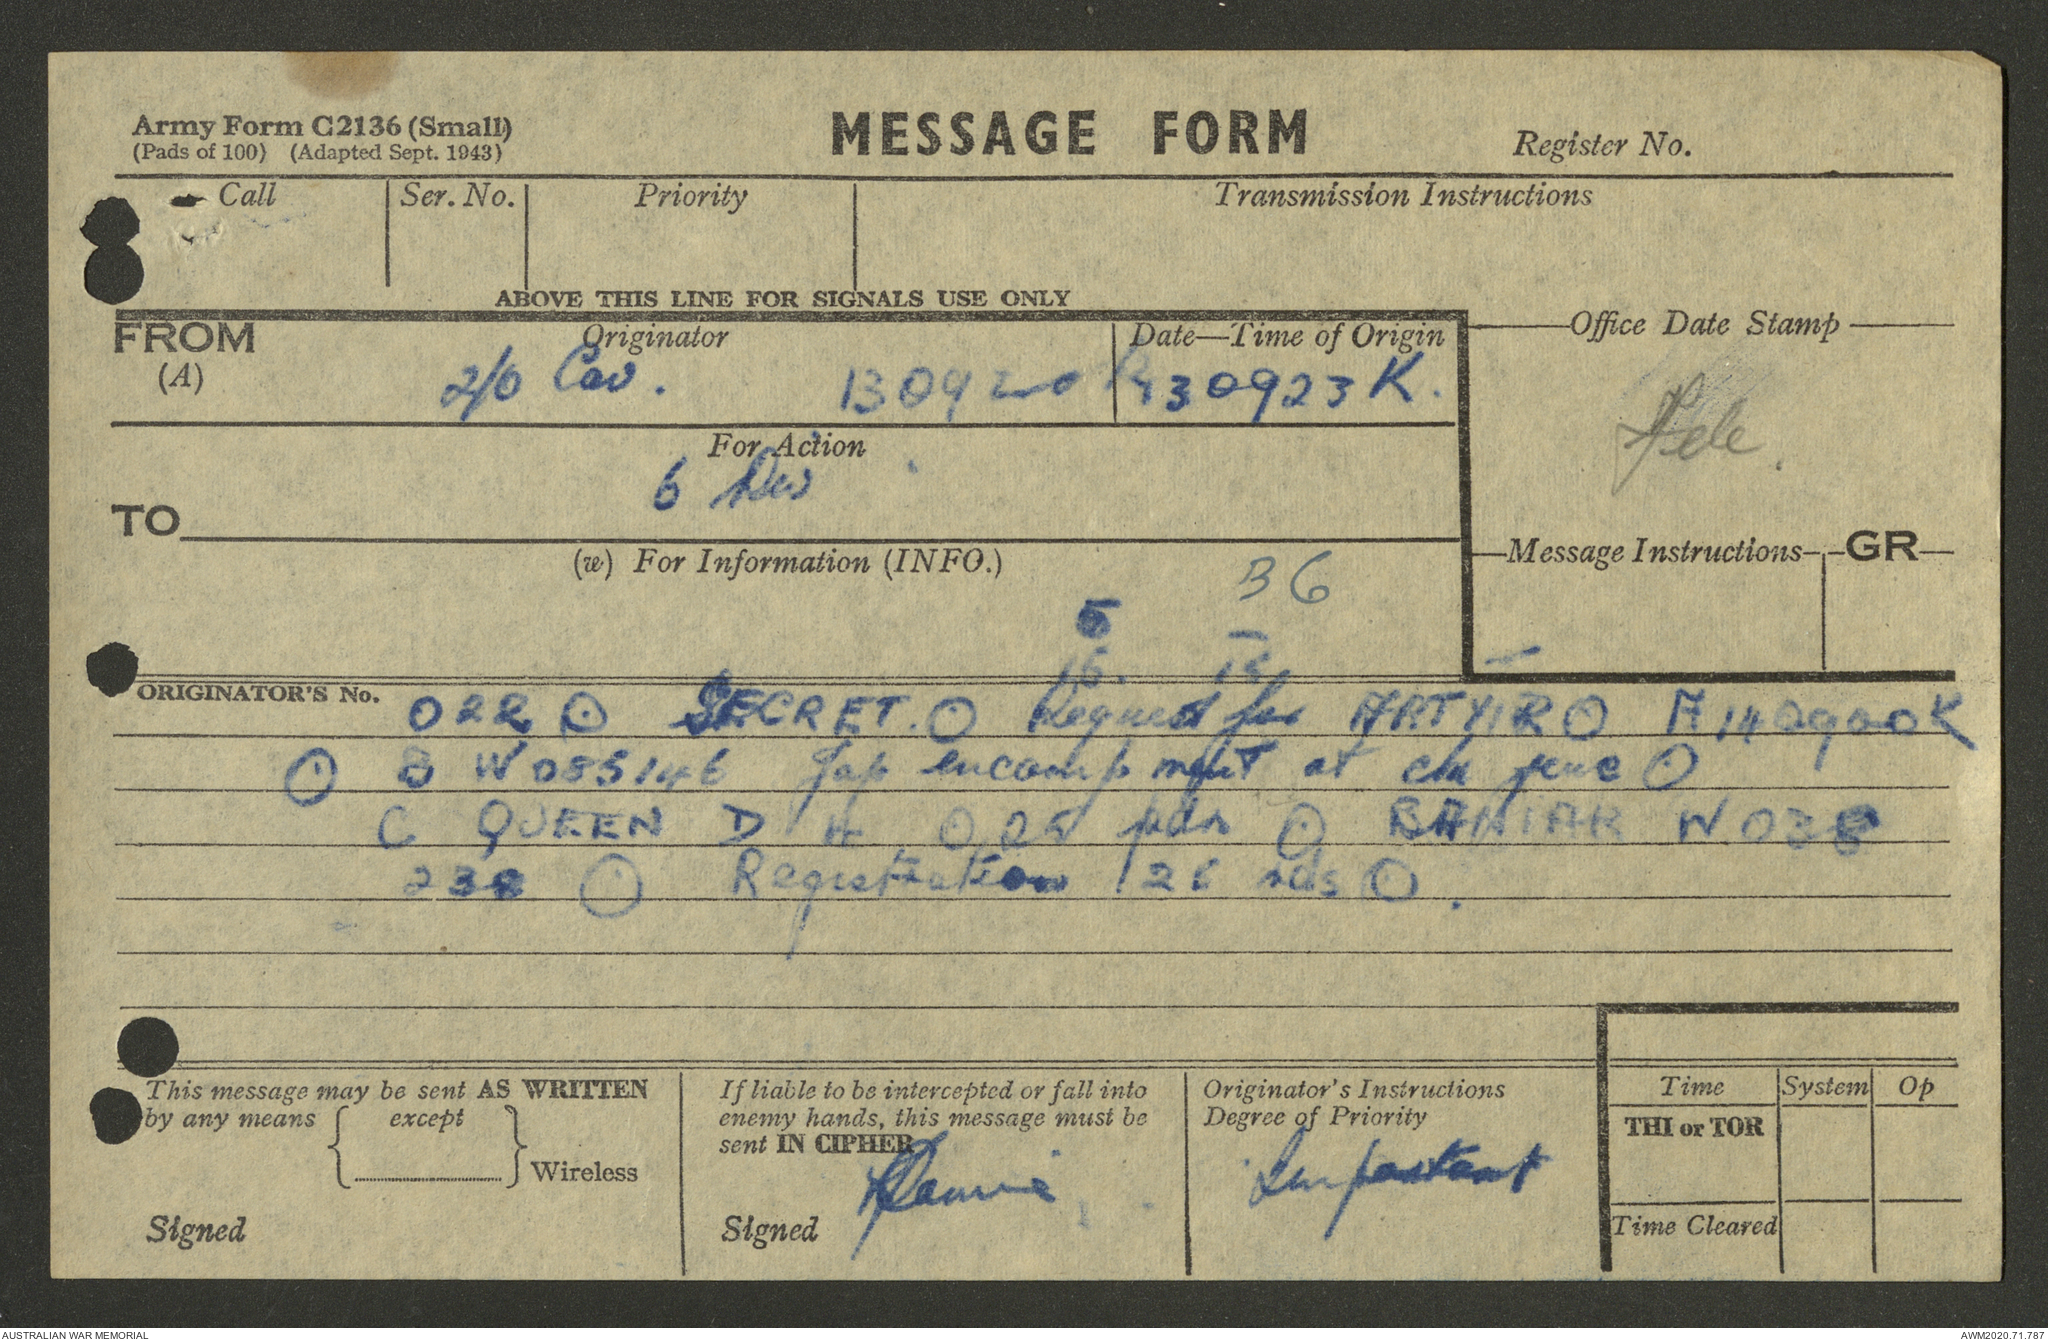 Army Form C2136 (Small)
(Pads of 100) (Adapted Sept. 1943)
MESSAGE FORM
Register No.
Call
Ser. No.
Priority
Transmission Instructions
ABOVE THIS LINE FOR SIGNALS USE ONLY
FROM
(A)
Originator
Date—Time of Origin
Office Date Stamp
130923K.
For Action
6 Div
TO
(w) For Information (INFO.)
Message Instructions
GR
B6
5
ORIGINATOR'S No.
022 ⊙ SECRET. ⊙ Request for ARTYIR ⊙ A 140900K
⊙ B W085146 Jap encampment at ck junc ⊙
C QUEEN D H ⊙ 25 pdr ⊙ W 038
238 ⊙ Registration 126 rds ⊙.
This message may be sent AS WRITTEN
by any means
except
Wireless
Signed
If liable to be intercepted or fall into
enemy hands, this message must be
sent IN CIPHER
Signed
Originator's Instructions
Degree of Priority
Important
Time
System
Op
THI or TOR
Time Cleared
AUSTRALIAN WAR MEMORIAL
AWM2020.71.787